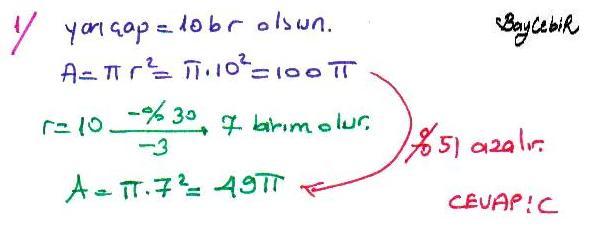 1/ yarıçap = 10 br olsun.
BayCebiR
A = π r² = π.10² = 100 π
r = 10 -% 30 -3 7 birim olur.
% 51 azalır.
A = π.7² = 49π
CEVAP: C